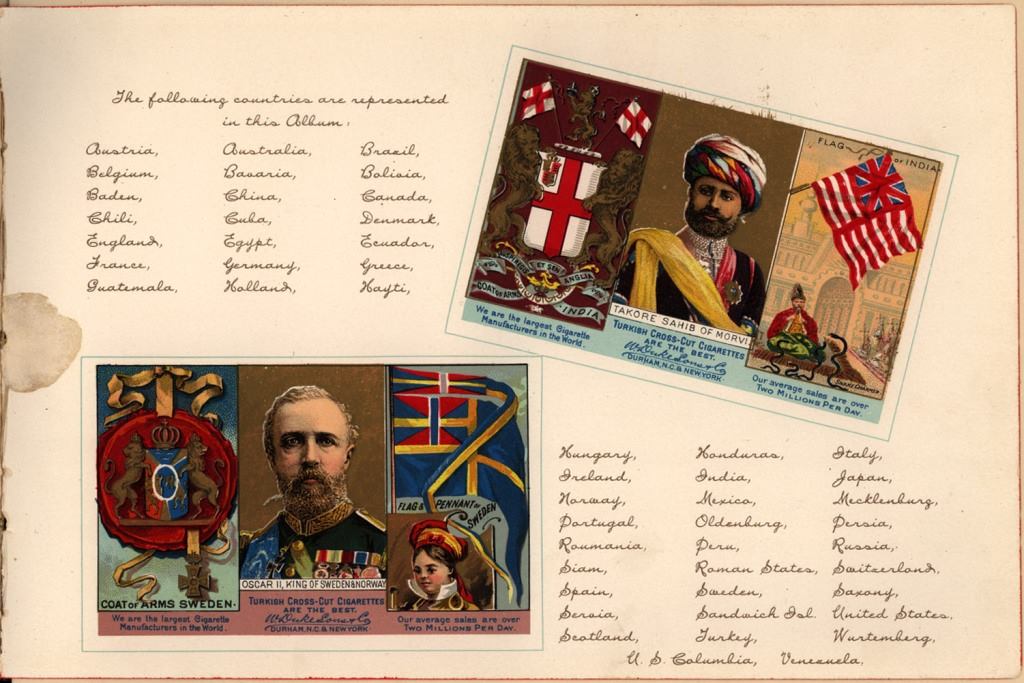 The following countries are represented
in this Album:
Austria, Australia, Brazil,
Belgium, Bavaria, Bolivia,
Baden, China, Canada,
Chili, Cuba, Denmark,
England, Egypt, Ecuador,
France, Germany, Greece,
Guatemala, Holland, Hayti,
FLAG OF INDIA
ET SEN
ANGLIA
COAT OF ARMS
INDIA
TAKORE SAHIB OF MORVI
SNAKE CHARMER
We are the largest Cigarette
Manufacturers in the World.
TURKISH CROSS-CUT CIGARETTES
ARE THE BEST.
W. Duke Sons & Co
DURHAM, N.C. & NEW YORK
Our average sales are over
TWO MILLIONS PER DAY.
FLAG & PENNANT OF
SWEDEN
COAT OF ARMS SWEDEN.
OSCAR II, KING OF SWEDEN & NORWAY
We are the largest Cigarette
Manufacturers in the World.
TURKISH CROSS-CUT CIGARETTES
ARE THE BEST.
W. Duke Sons & Co
DURHAM, N.C. & NEW YORK
Our average sales are over
TWO MILLIONS PER DAY.
Hungary, Honduras, Italy,
Ireland, India, Japan,
Norway, Mexico, Mecklenburg,
Portugal, Oldenburg, Persia,
Roumania, Peru, Russia,
Siam, Roman States, Switzerland,
Spain, Sweden, Saxony,
Servia, Sandwich Isl. United States.
Scotland, Turkey, Wurtemberg,
U. S. Columbia, Venezuela.